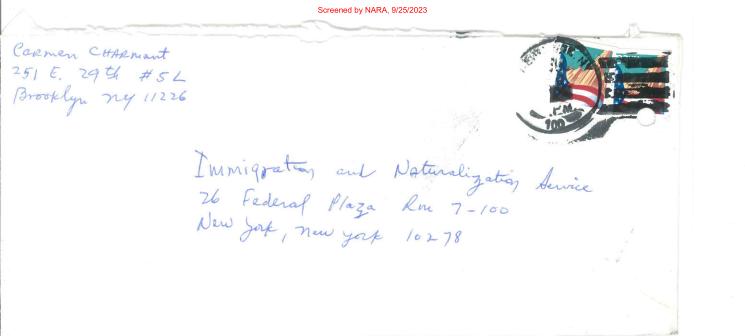 Screened by NARA, 9/25/2023
Carmen CHARMANT
251 E. 29th #5L
Brooklyn NY 11226
P.M.
Immigration and Naturalization Service
26 Federal Plaza Rm 7-100
New York, New York 10278